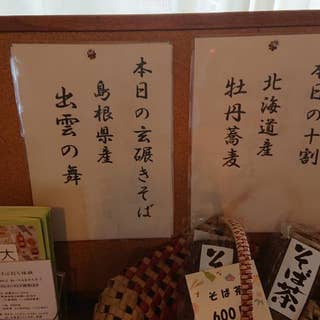 本日の玄碾きそば
島根県産
出雲の舞
本日の十割
北海道産
牡丹蕎麦
大
そば茶
600
そば茶